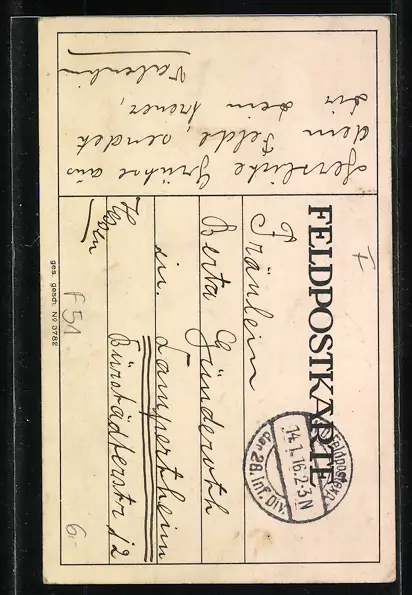 FELDPOSTKARTE
Feldpostexp.
14.1.16.2-3N
der 28. Inf. Div.
Fräulein
Berta Günderoth
in Lampertheim
Bürstädterstr 12
Hessen
Herzliche Grüße aus
dem Felde, sendet
dir dein treuer,
Valentin
F 51
6.-
ges. gesch. № 3782